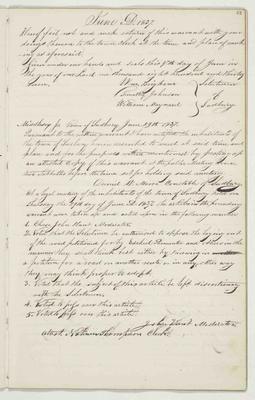 June AD. 1837.
Hereof fail not and make return of this warrant with your
doings thereon to the town clerk at the time and place of meet-
ing as aforesaid.
Given under our hands and seals this 8th day of June in
the year of our Lord one thousand eight hundred and thirty
seven.
Wm Brigham } Selectmen
Timothy Johnson } of
William Maynard } Sudbury
Middlesex ss. Town of Sudbury June 19th 1837.
Pursuant to the within warrant I have notified the inhabitants of
the town of Sudbury herein to meet at said time and
place and for the purposes within mentioned by
an attested copy of this warrant at the public Meeting house
two Sabbaths before the time set for holding said meeting
Constable of Sudbury
At a legal meeting of the inhabitants of the town of Sudbury
Sudbury the 19th day of June AD. 1837 the articles in the foregoing
warrant was taken up and acted upon in the following manner
1. Chose John Hunt Moderator
2. Voted that the Selectmen be authorised to oppose the laying out
of the road petitioned for by and others in the
manner they shall think best either by
a petition for a road on another route or in any other way
they may think proper to adopt.
3. Voted that the subject of this article be left discretionary
with the Selectmen.
4. Voted to pass over this article.
5. Voted to pass over this article.
John Hunt Moderator
attest Nahum Thompson Clerk